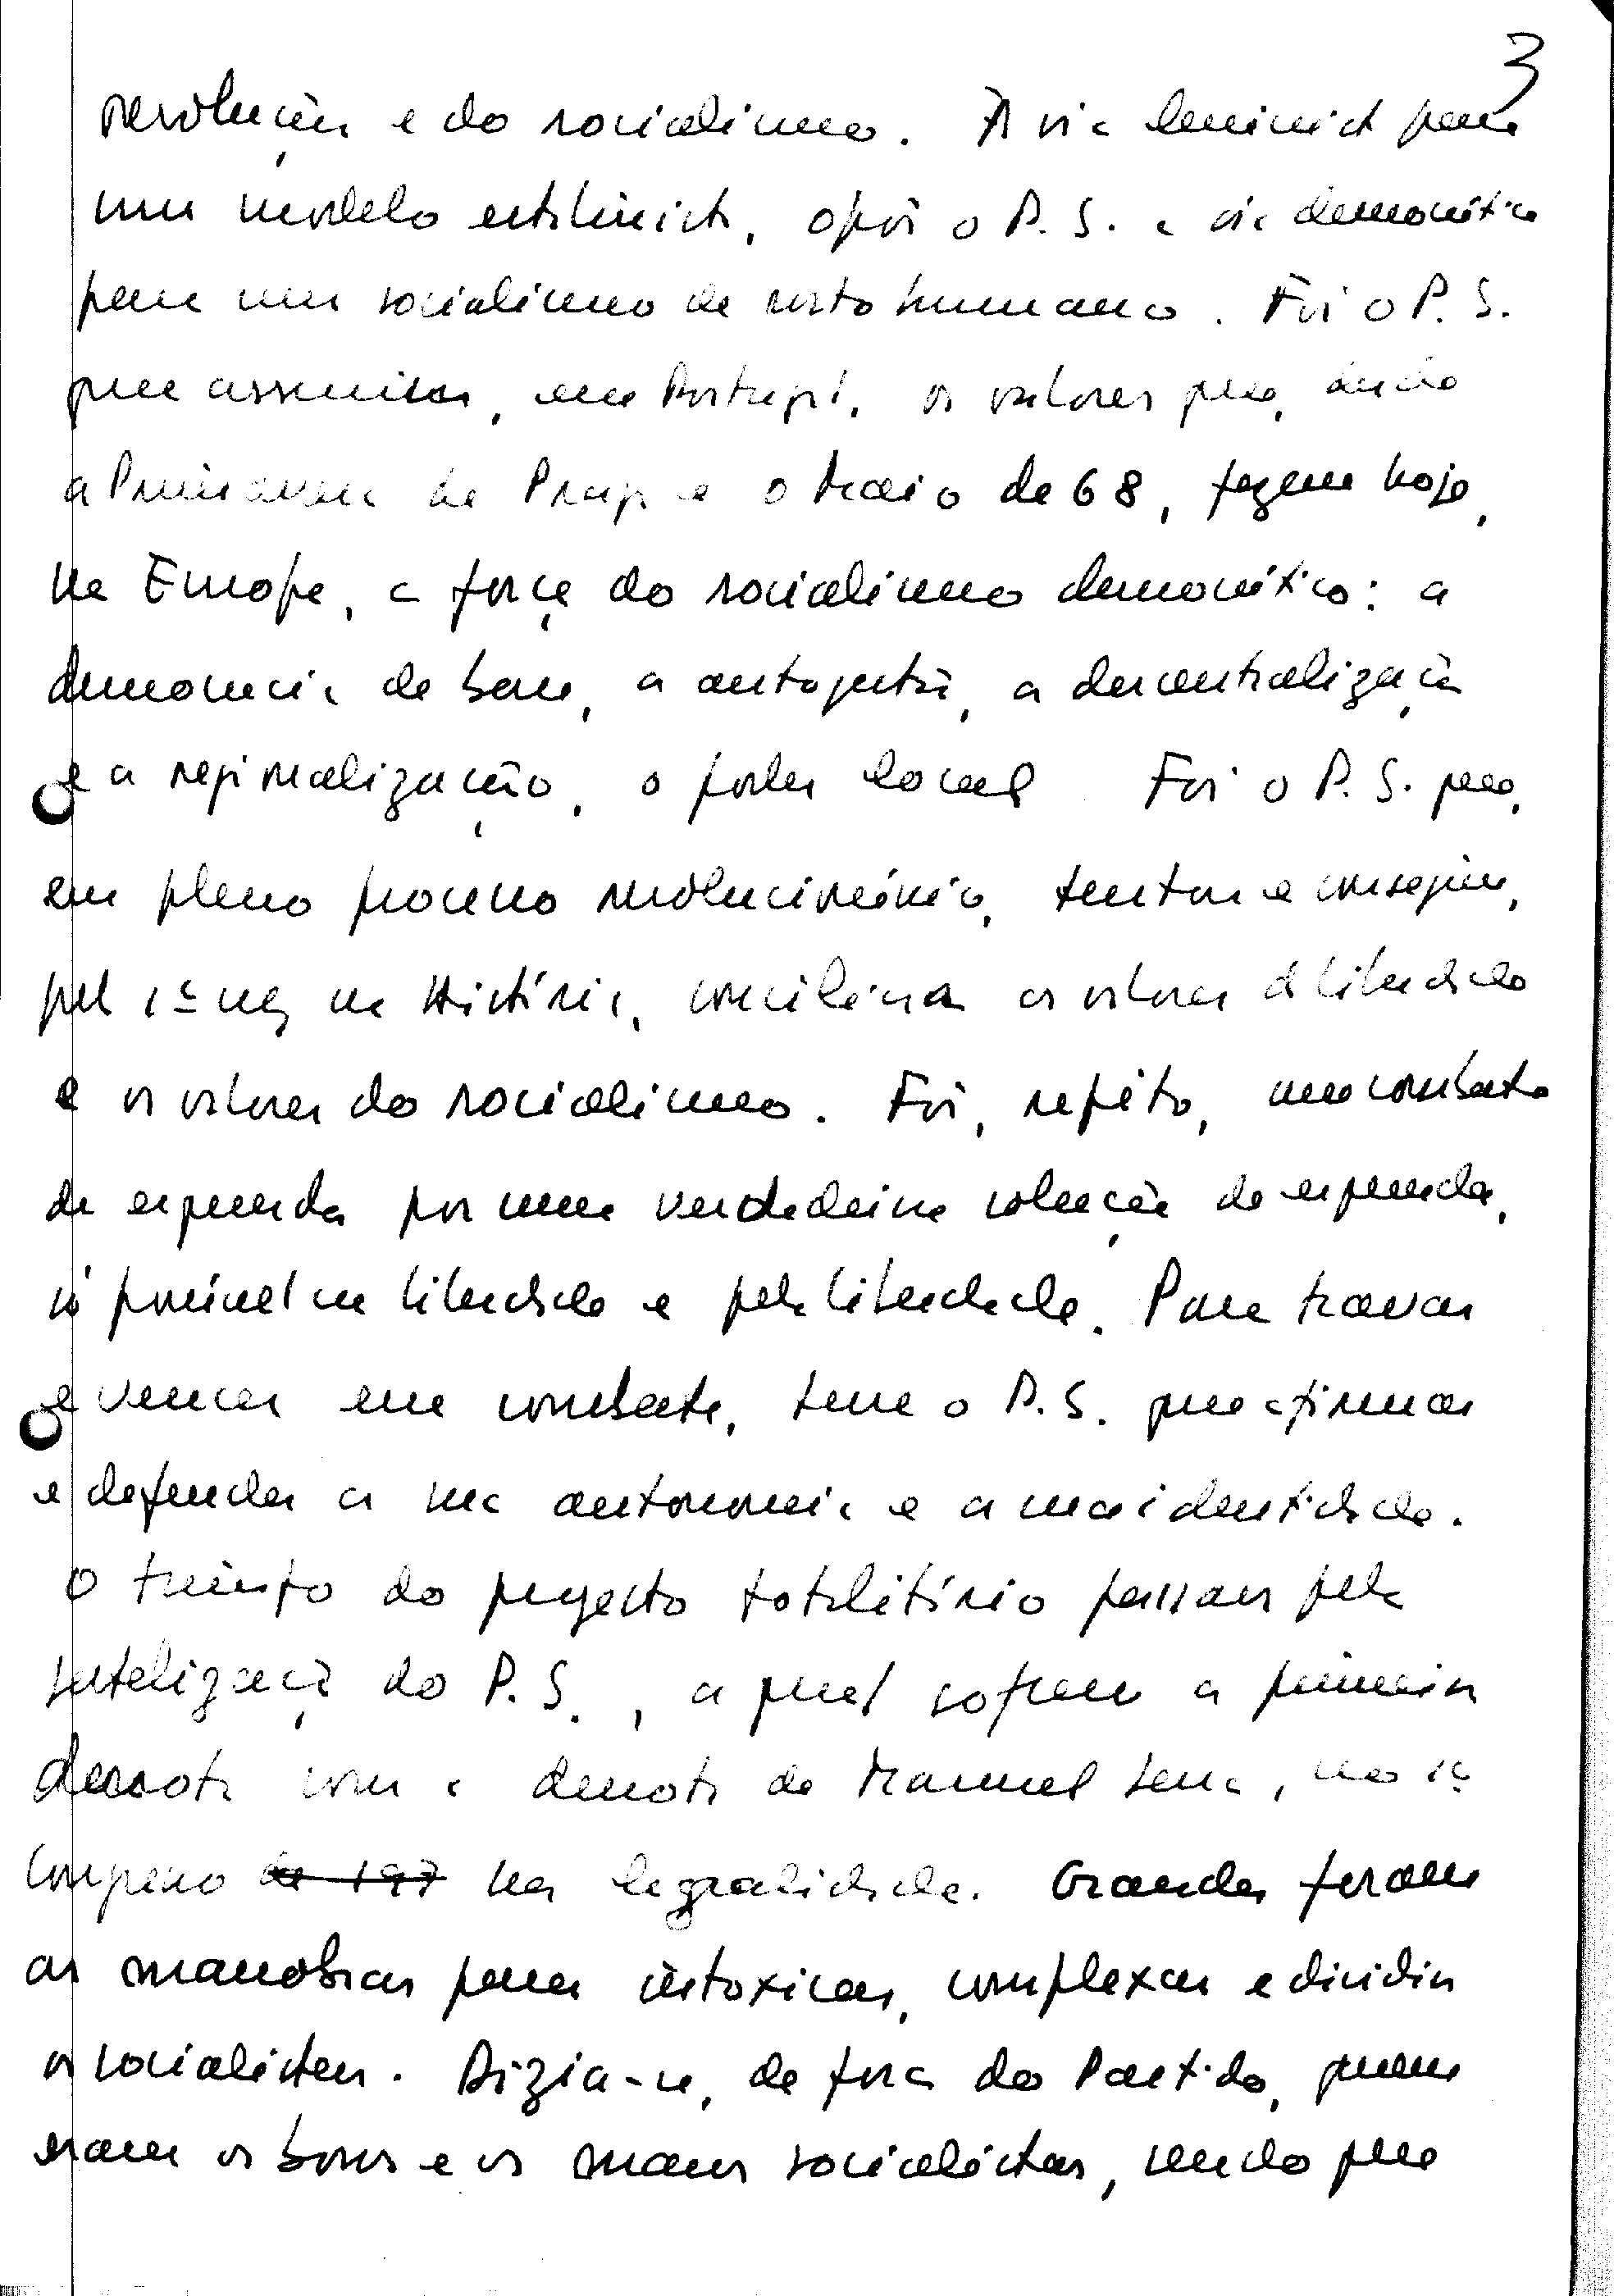 3
revolução e do socialismo. À via leninista para
um modelo estalinista, opôs o P. S. a via democrática
para um socialismo de rosto humano. Foi o P. S.
que assumiu, em Portugal, os valores que, desde
a Primavera de Praga e o Maio de 68, fazem hoje,
na Europa, a força do socialismo democrático: a
democracia de base, a autogestão, a descentralização
e a regionalização, o poder local. Foi o P. S. que,
em pleno processo revolucionário, tentou e conseguiu,
pela 1ª vez na História, conciliar os valores da liberdade
e os valores do socialismo. Foi, repito, um combate
de esquerda por uma verdadeira solução de esquerda,
só possível na liberdade e pela liberdade. Para travar
e vencer esse combate, teve o P. S. que afirmar
e defender a sua autonomia e a sua identidade.
O triunfo do projecto totalitário passava pela
satelização do P. S., a qual sofreu a primeira
derrota com a derrota de Manuel Serra, no 1º
Congresso de 197 na legalidade. Grandes foram
as manobras para intoxicar, complexar e dividir
os socialistas. Dizia-se, de fora do Partido, quem
eram os bons e os maus socialistas, sendo que